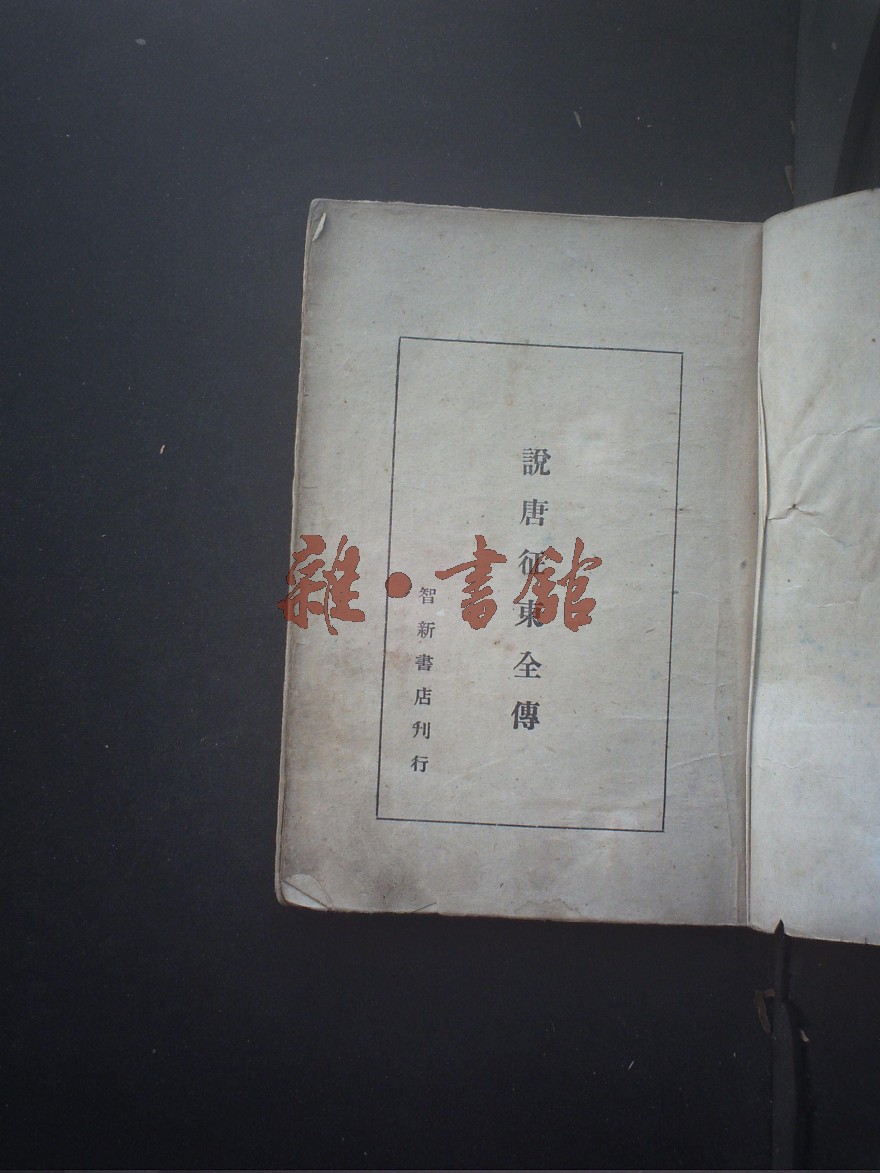 說唐征東全傳
智新書店刋行
雜·書館